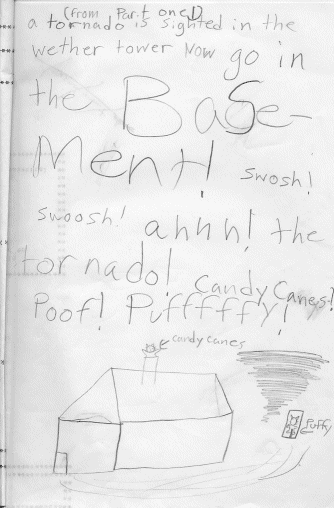 (from Part one!)
a tornado is sighted in the
wether tower Now go in
the BaSe-
Ment! swosh!
swoosh! ahhh! the
tornado! Candy Canes!
Poof! Puffffffy!
candy canes
Puffy